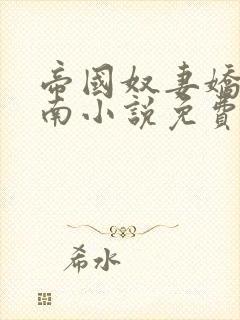 帝國奴妻嬌
南小說免費
希水